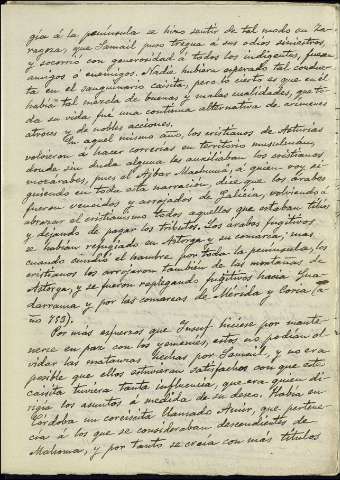 gía á la península se hizo sentir de tal modo en Za-
ragoza, que Samail puso tregua á sus odios siniestros,
y socorrió con generosidad á todos los indigentes, fuesen
amigos ó enemigos. Nadie hubiera esperado tal conduc-
ta en el sanguinario caisita, pero lo cierto es que en él
había tal mezcla de buenas y malas cualidades, que to-
da su vida fué una continua alternativa de crímenes
atroces y de nobles acciones.
En aquel mismo año, los cristianos de Asturias
volvieron á hacer correrías en territorio musulmán,
donde sin duda alguna les auxiliaban los cristianos
mozárabes, pues el Ajbar Machmua, á quien voy si-
guiendo en toda esta narración, dice que los árabes
fueron vencidos y arrojados de Galicia, volviendo á
abrazar el cristianismo todos aquellos que estaban
y dejando de pagar los tributos. Los árabes fugitivos
se habían refugiado en Astorga y su comarca; mas
cuando cundió el hambre por toda la península, los
cristianos los arrojaron también de las montañas de
Astorga, y se fueron replegando fugitivos hacia Gua-
darrama y por las comarcas de Mérida y Coria (a-
ño 753).
Por más esfuerzos que Yusuf hiciese por mante-
nerse en paz con los yemenies, estos no podían ol-
vidar las matanzas hechas por Samail, y no era
posible que ellos estuvieran satisfechos con que este
caisita tuviera tanta influencia, que era quien di-
rigía los asuntos á medida de su deseo. Había en
Córdoba un coreixita llamado Amir, que pertene-
cía á los que se consideraban descendientes de
Mahoma, y por tanto se creía con más títulos